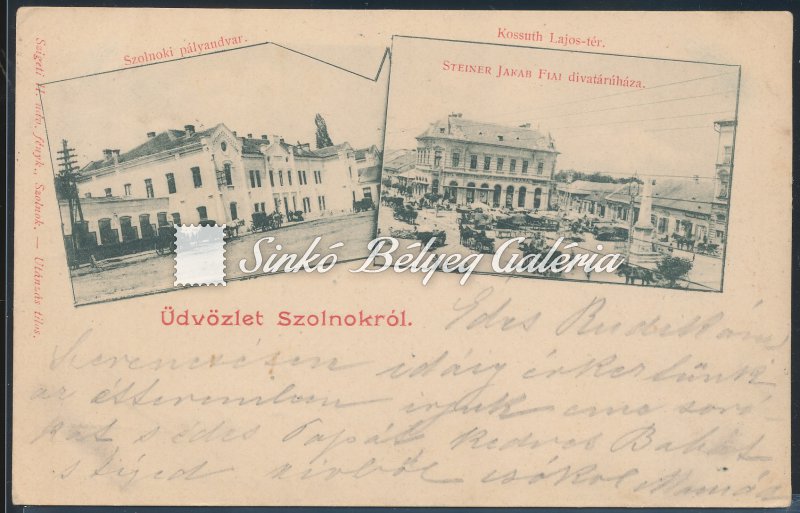 Szolnoki pályaudvar.
Kossuth Lajos-tér.
STEINER JAKAB FIAI divatárúháza.
Szigeti H. udv. fényk., Szolnok. — Utánzás tilos.
Sinkó Bélyeg Galéria
Üdvözlet Szolnokról.
Édes Rudikám
Szerencsésen idáig érkeztünk
az étteremben irjuk eme soro
kat s édes Papát kedves Babát
s téged szivből csókol Mamád